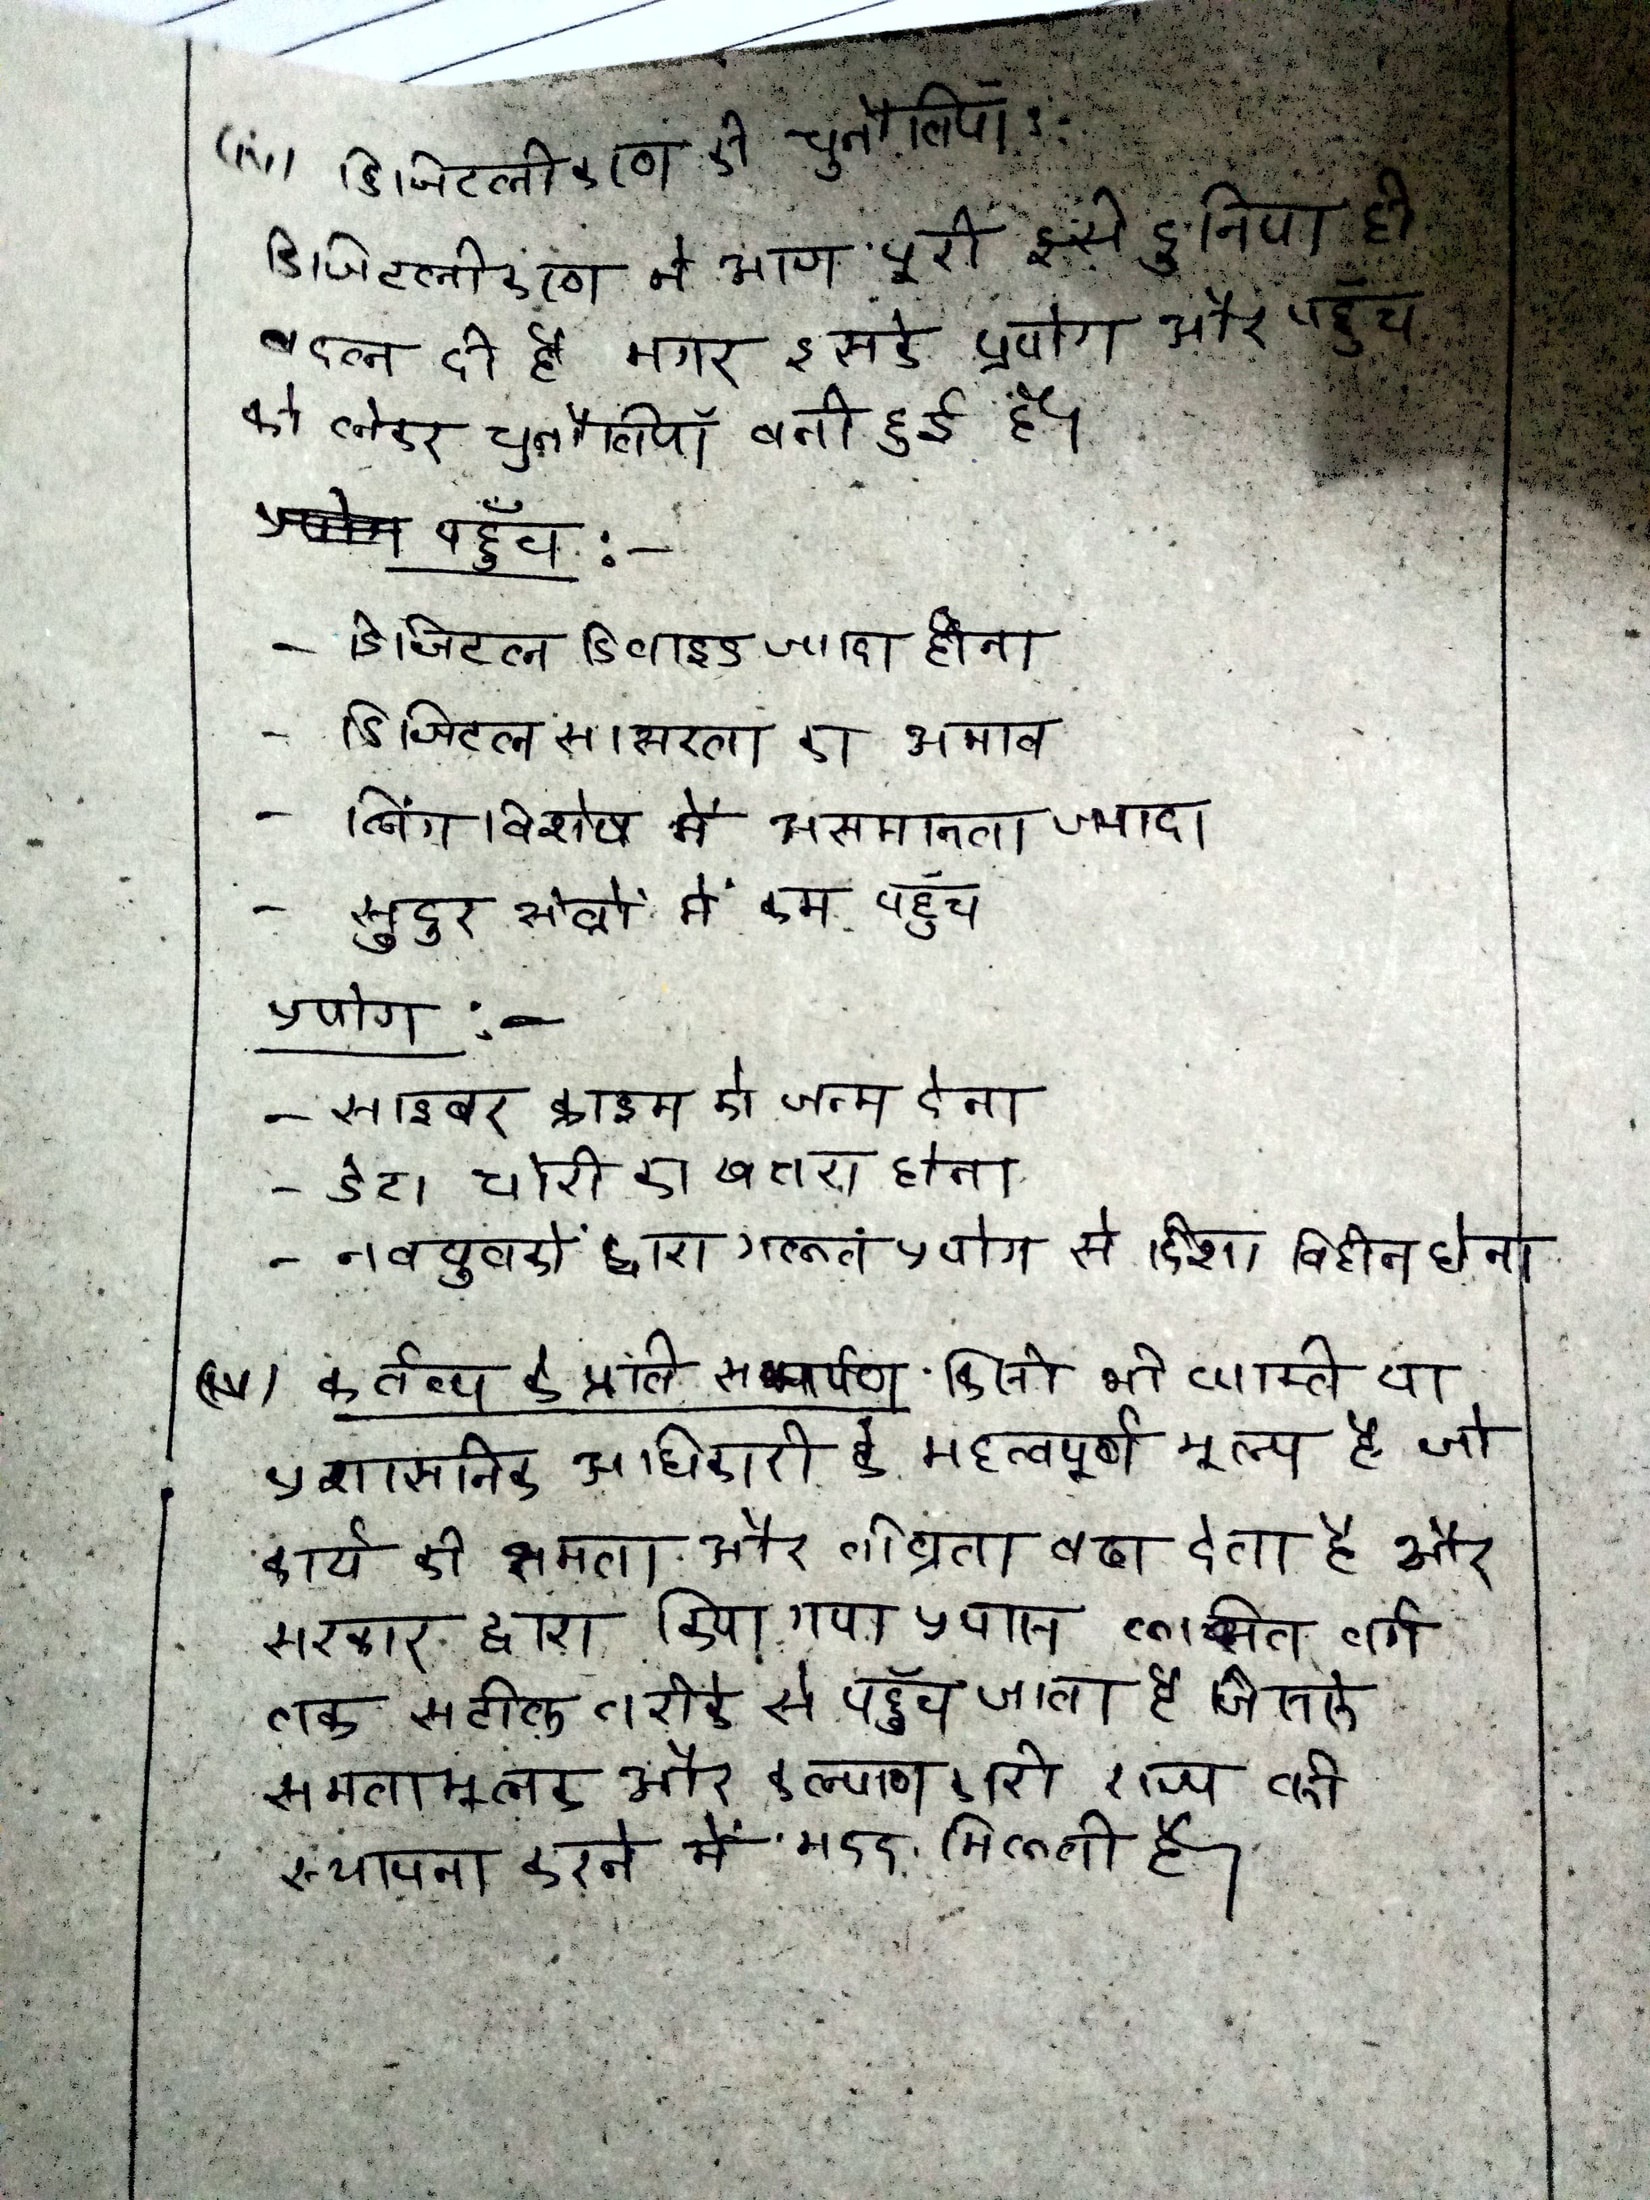 (iii) डिजिटलीकरण की चुनौतियाँ :-
डिजिटलीकरण ने आज पूरी दुनिया ही
बदल दी है मगर इसके प्रयोग और पहुँच
को लेकर चुनौतियाँ बनी हुई है।
पहुँच :-
- डिजिटल डिवाइड ज्यादा होना
- डिजिटल साक्षरता का अभाव
- लिंग विशेष में असमानता ज्यादा
- सुदुर क्षेत्रों में कम पहुँच
प्रयोग :-
- साइबर क्राइम को जन्म देना
- डेटा चोरी का खतरा होना
- नवयुवकों द्वारा गलत प्रयोग से दिशा विहीन होना
(iv) कर्तव्य के प्रति समर्पण किसी भी व्यक्ति या
प्रशासनिक अधिकारी के महत्वपूर्ण मूल्य है जो
कार्य की क्षमता और तीव्रता बढा देता है और
सरकार द्वारा किया गया प्रयास लक्षित वर्ग
तक सटीक तरीके से पहुँच जाता है जिससे
समतामूलक और कल्याणकारी राज्य की
स्थापना करने में मदद मिलती है।